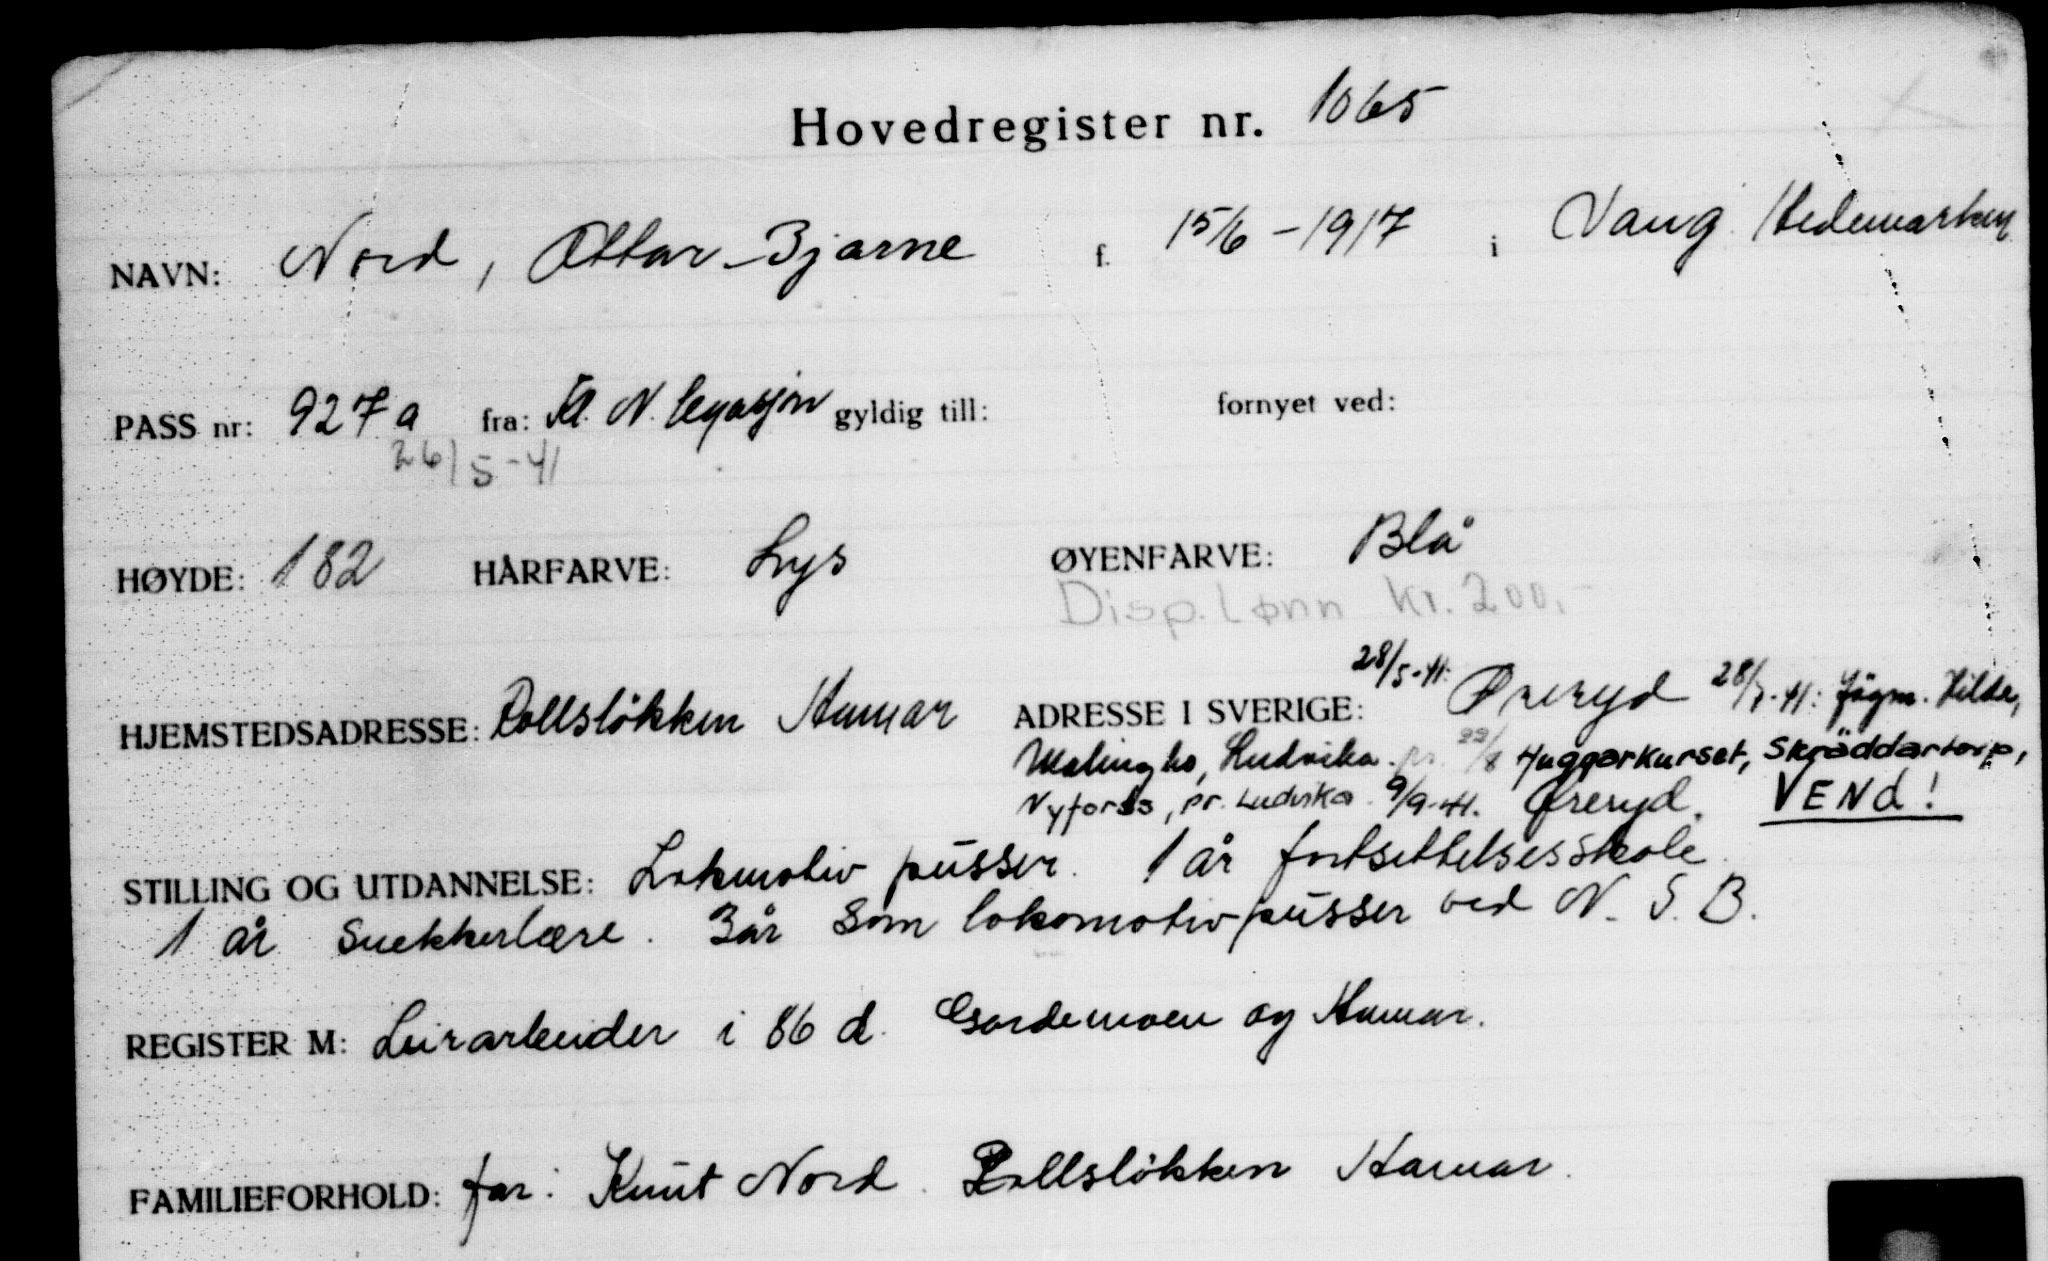 Hovedregister nr. 1065
NAVN: Nord, Ottar Bjarne f. 15/6-1917 i Vang Hedemarken
PASS nr: 927 a fra: Kl. N. legasjon gyldig till: fornyet ved:
26/5-41
HØYDE: 182 HÅRFARVE: Lys ØYENFARVE: Blå
Disp. Lønn kr. 200,-
HJEMSTEDSADRESSE: Rollsløkken Hamar ADRESSE I SVERIGE: 28/5-41: Øreryd 28/7-41: Jägm. Hilda,
Malingbo, Ludvika. pr. 22/8 Huggarkurset, Skräddartorp,
Nyfors, pr. Ludvika 9/9-41. Øreryd. VENd!
STILLING OG UTDANNELSE: Lokmotiv pusser. 1 år fortsettelsesskole.
1 år Snekkerlære. 3 år som lokomotivpusser ved N. S. B.
REGISTER M: Leirarbeider i 86 d. Gardemoen og Hamar.
FAMILIEFORHOLD: far: Knut Nord. Rollsløkken Hamar.